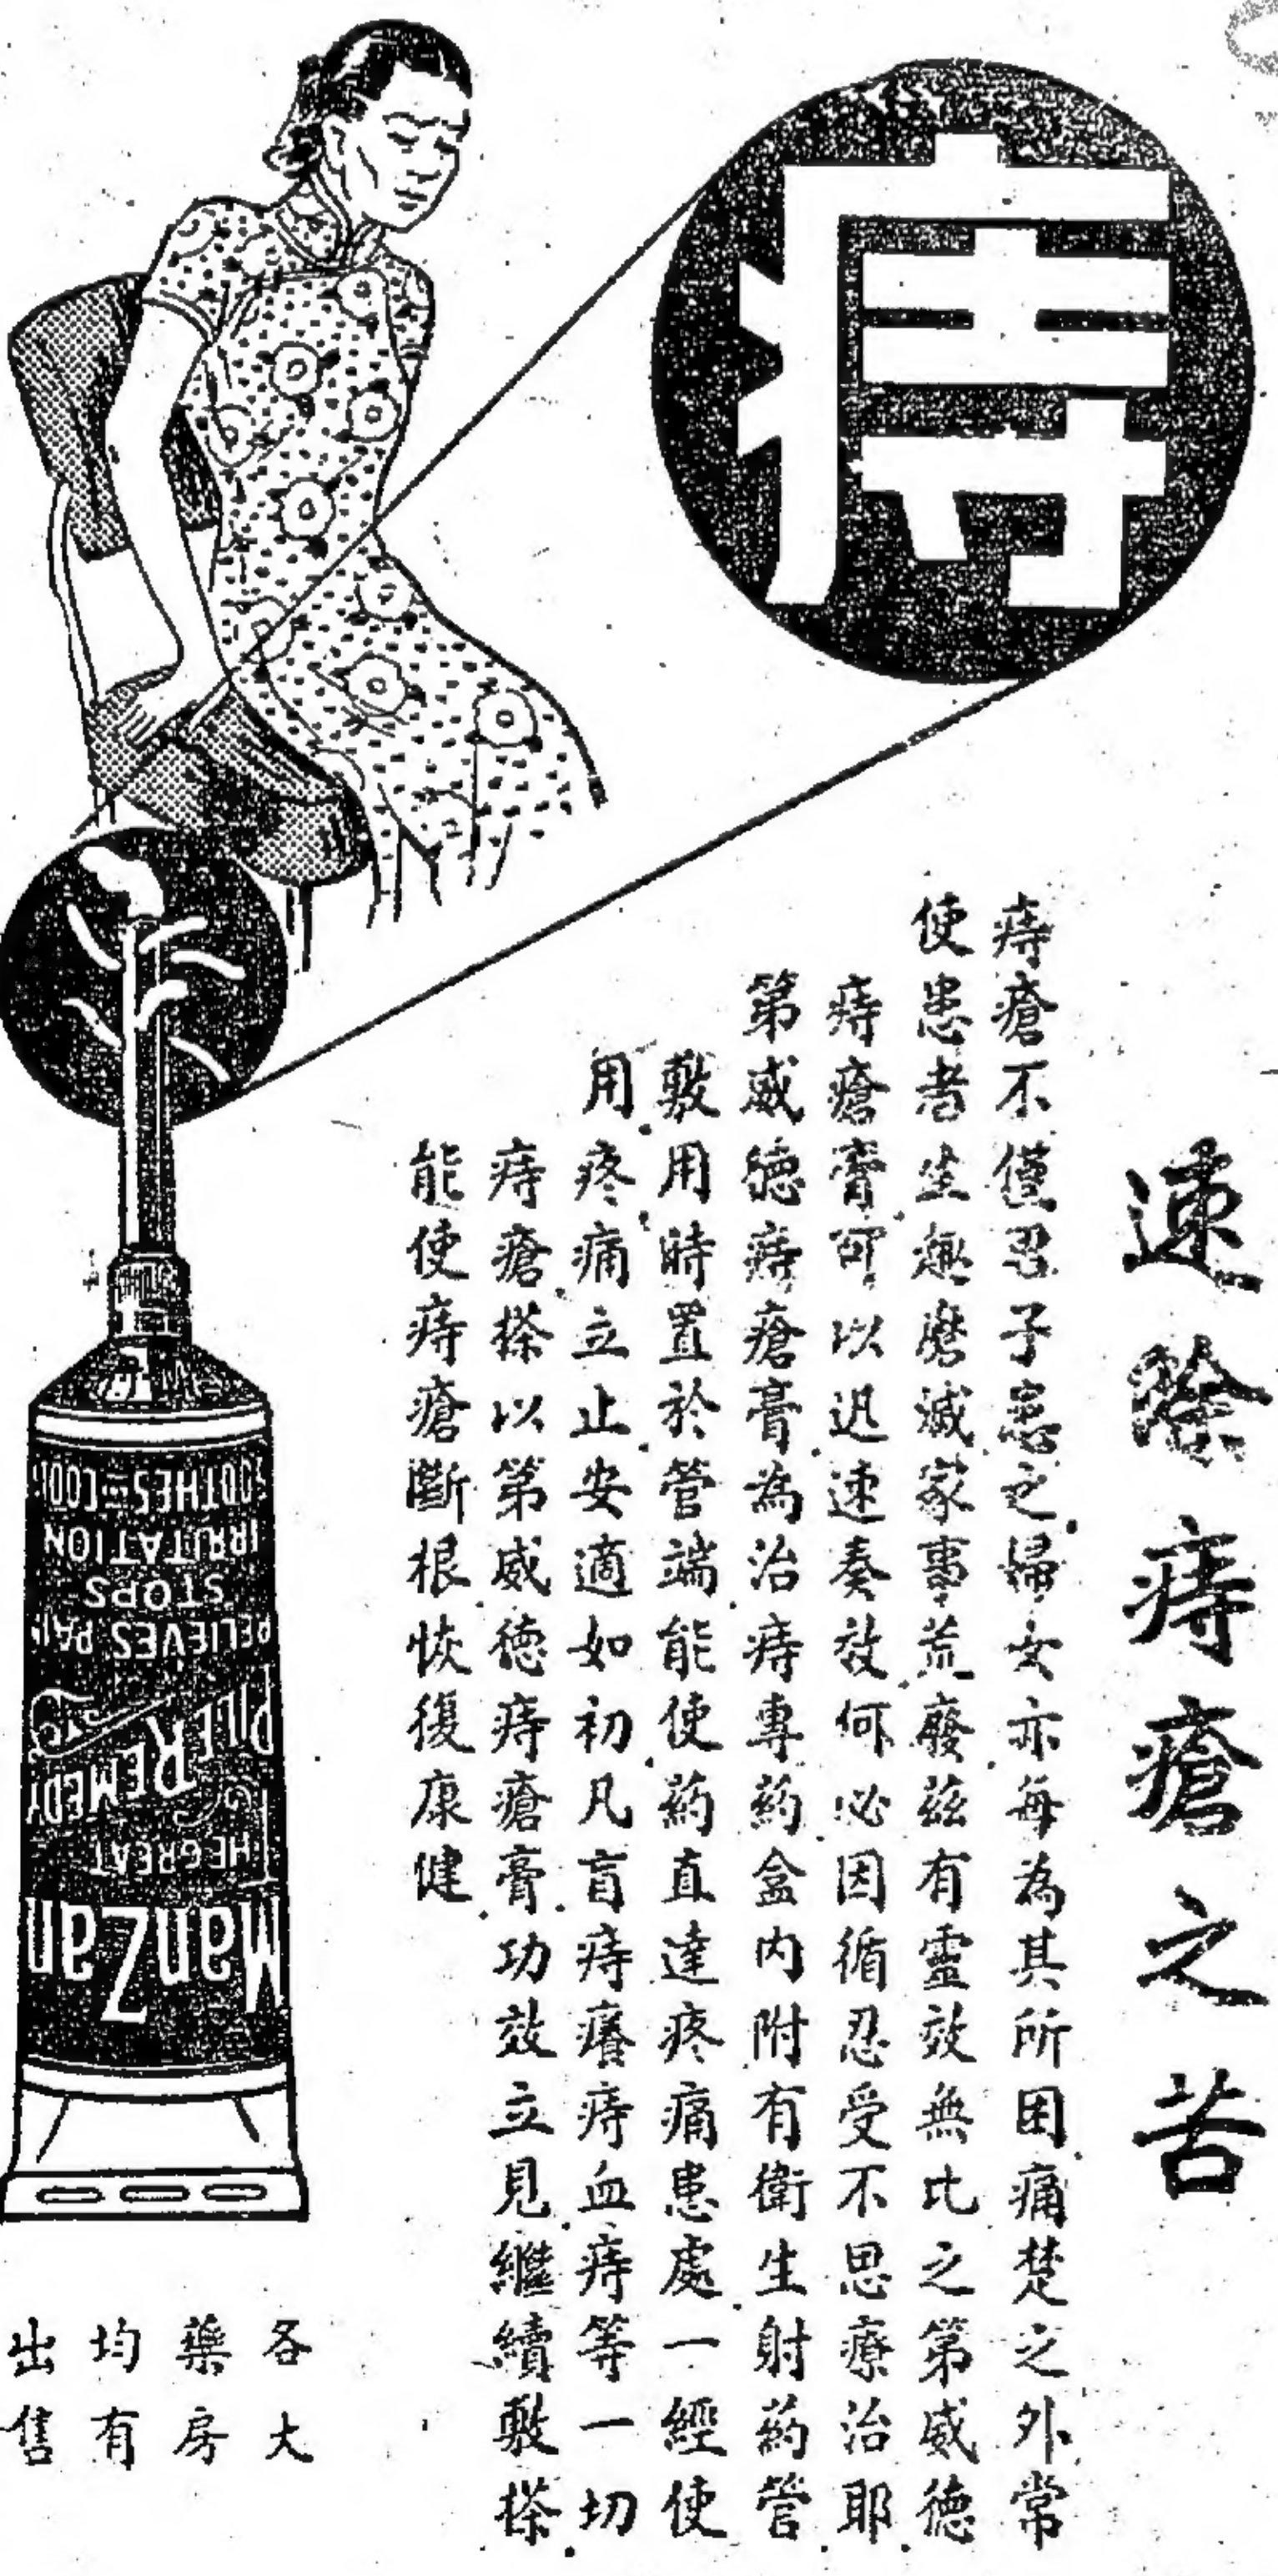 痔
速除痔瘡之苦
痔瘡不僅忍予之婦女亦每為其所困痛楚之外常
使患者生趣磨滅家事荒廢茲有靈效無比之第威德
痔瘡膏可以迅速奏效何必因循忍受不思療治耶
第威德痔瘡膏為治痔專葯盒内附有衛生射葯管
敷用時置於管端能使葯直達疼痛患處一經使
用疼痛立止安適如初凡盲痔癢痔血痔等一切
痔瘡搽以第威德痔瘡膏功效立見繼續敷搽
能使痔瘡斷根恢復康健
各大
藥房
均有
出售
ManZan
THE GREAT
PILE REMEDY
RELIEVES PAIN
STOPS
IRRITATION
SOOTHES=COOLS